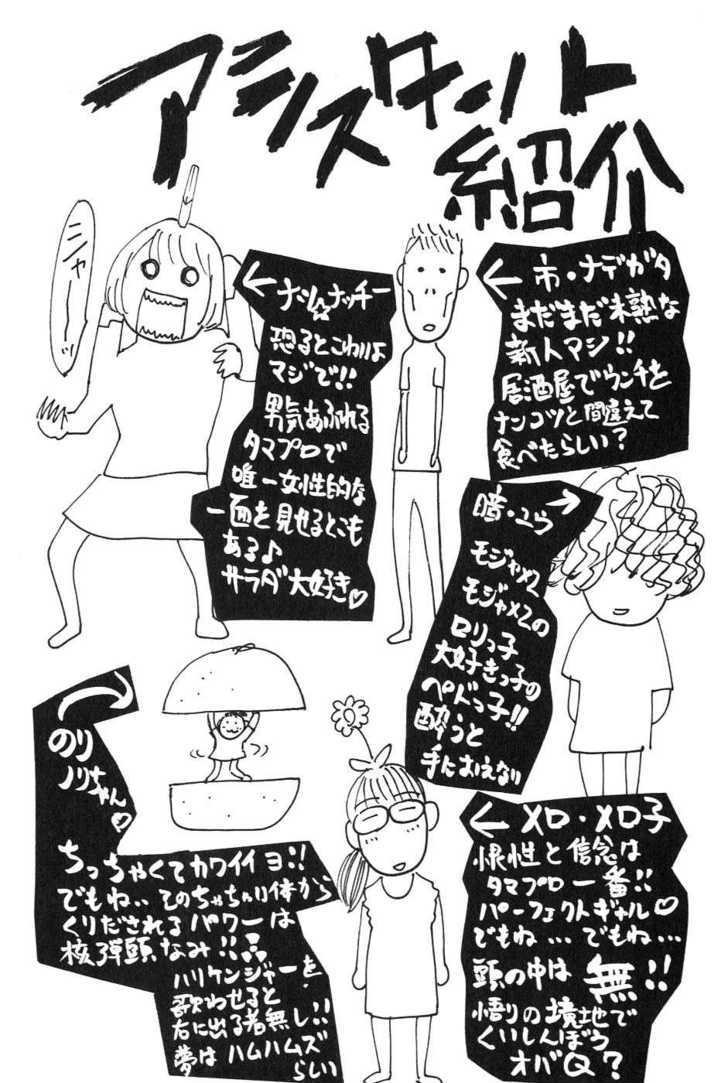 アシスタント
紹介
ニャーッ
← 市・ナデガタ
まだまだ未熟な
新人マシ!!
居酒屋でウンチと
ナンコツと間違えて
食べたらしい?
← ナシ☆ナッチー
怒るとこわいよ
マジで!!
男気あふれる
タマプロで
唯一女性的な
一面を見せるとこも
ある♪
サラダ大好き♡
暗・ユウ →
モジャ×2
モジャ×2の
ロリっ子
大好きっ子の
ペドっ子!!
酔うと
手におえない
のり
ノリちゃん♡
ちっちゃくてカワイイヨ!!
でもね‥そのちっちゃい体から
くりだされるパワーは
核弾頭なみ!!
ハリケンジャーを
歌わせると
右に出る者無し!!
夢はハムハムズ
らしい
← メロ・メロ子
根性と信念は
タマプロ一番!!
パーフェクトギャル♡
でもね…でもね…
頭の中は 無!!
悟りの境地で
くいしんぼう
オバQ?